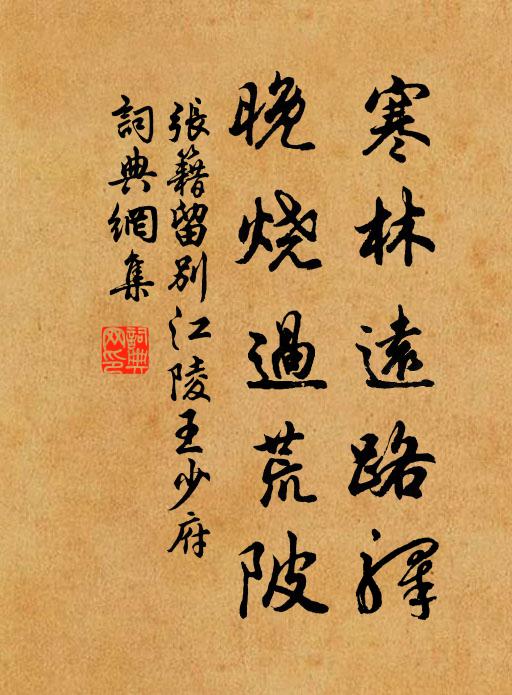 寒林遠路驛
晚烧過荒陂
張籍留別江陵王少府
詞典網集
詞典网印